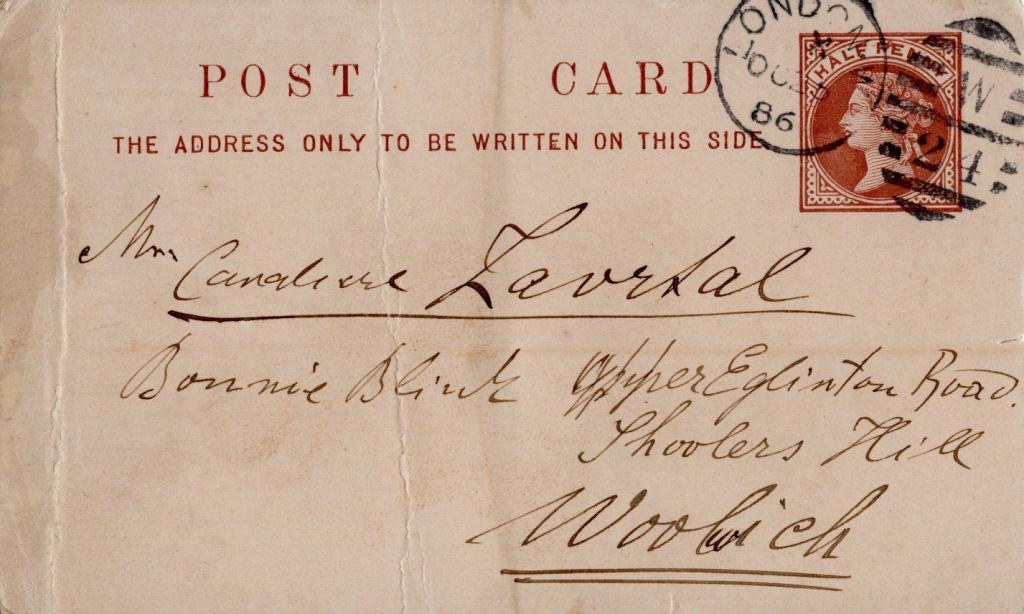 POST CARD
THE ADDRESS ONLY TO BE WRITTEN ON THIS SIDE
LONDON
OC 2
86
HALF PENNY
W
24
Cavaliere Zavrtal
Bonnie Blink Upper Eglinton Road.
Shooters Hill
Woolwich